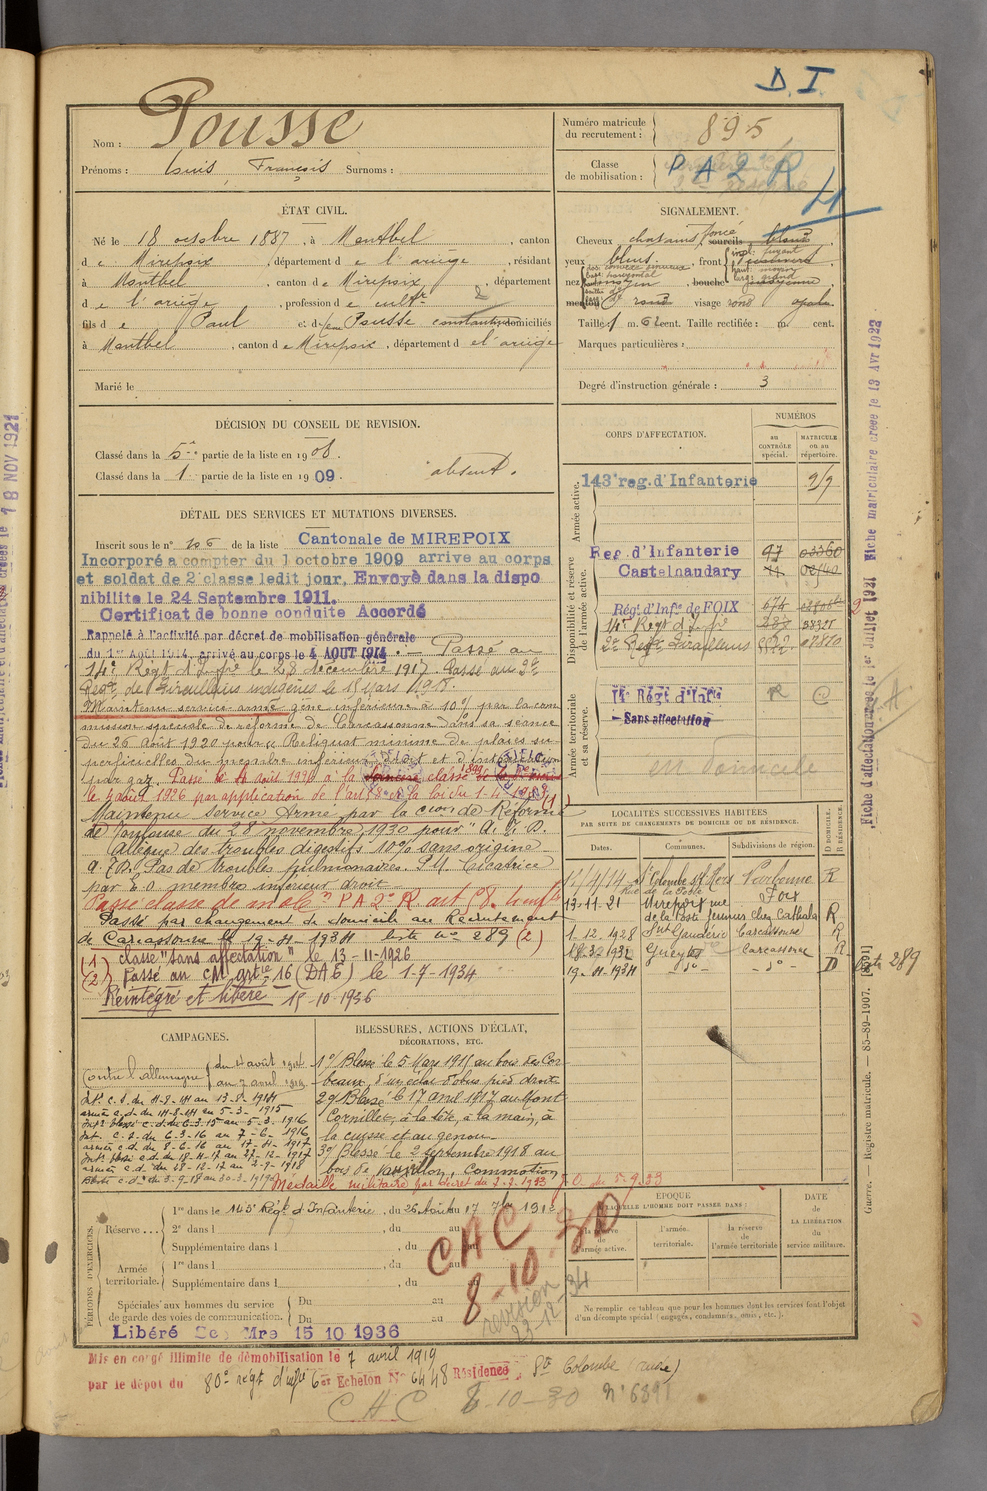 D. I.
Nom : Pousse
Prénoms : Louis, François Surnoms :
Numéro matricule du recrutement : 895
Classe de mobilisation : P A 2 R
ÉTAT CIVIL.
Né le 18 octobre 1887, à Montbel, canton
d e Mirepoix, département d e l'ariège, résidant
à Montbel, canton d e Mirepoix, département
d e l'ariège, profession de cultr
fils d e Paul et d e feu Pousse Constantin domiciliés
à Montbel, canton d e Mirepoix, département d e l'ariège
Marié le
SIGNALEMENT.
Cheveux châtains foncé, sourcils blond
yeux bleus, front
nez, bouche
menton rond visage rond
Taille : 1 m. 62 cent. Taille rectifiée : m. cent.
Marques particulières :
Degré d'instruction générale : 3
DÉCISION DU CONSEIL DE REVISION.
Classé dans la 5e partie de la liste en 1908.
Classé dans la 1 partie de la liste en 1909. absent.
DÉTAIL DES SERVICES ET MUTATIONS DIVERSES.
Inscrit sous le n° 106 de la liste Cantonale de MIREPOIX
Incorporé a compter du 1 octobre 1909 arrive au corps
et soldat de 2e classe ledit jour. Envoyé dans la dispo
nibilite le 24 Septembre 1911.
Certificat de bonne conduite Accordé
Rappelé à l'activité par décret de mobilisation générale
du 1er Août 1914, arrivé au corps le 4 AOUT 1914. - Passé au
14e Régt d'Infie le 28 décembre 1917. Passé au 2e
Regt de Tirailleurs indigènes le 15 Mars 1918.
Maintenu service armé gêne inférieure à 10% par la com
mission spéciale de réforme de Carcassonne dans sa séance
du 26 Août 1920 pour : Reliquat minime de plaies su
perficielles du membre inférieur droit et d'intoxication
par gaz. Passé le 4 août 1926 à la classe 1899
le 4 août 1926 par application de l'art 58 de la loi du 1-4-1923 (1)
Maintenu service Armé par la cion de Réforme
de Toulouse du 28 novembre 1930 pour "A. I. B.
Allègue des troubles digestifs 10% sans origine
a. I. B. Pas de troubles pulmonaires P.M. Cicatrice
par E.O membre inférieur droit
Passé classe de mobon P A 2e R art 58
Passé par changement de domicile au Recrutement
de Carcassonne le 19-4-1934 liste n° 289 (2)
(1) classé "sans affectation" le 13-11-1926
(2) Passé au CM artie 16 (DAE) le 1-7-1934
Réintégré et libéré 15-10-1936
CORPS D'AFFECTATION.
NUMÉROS
au CONTRÔLE spécial.
MATRICULE ou au répertoire.
Armée active.
143e reg. d'Infanterie
Disponibilité et réserve de l'armée active.
Reg. d'Infanterie 97 03360
Castelnaudary 02540
Régt. d'Infie de FOIX 674
14e Régt d'Infie
2e Regt Tirailleurs
Armée territoriale et sa réserve.
14e Régt d'Infie
Sans affectation
LOCALITÉS SUCCESSIVES HABITÉES
PAR SUITE DE CHANGEMENTS DE DOMICILE OU DE RÉSIDENCE.
Dates. Communes. Subdivisions de région. D DOMICILE. R RÉSIDENCE.
14/4/14 Ste Colombe s/l'Hers Narbonne R
13-11-21 Mirepoix rue Foix
de la Poste fermier chez Cathala R
1-12-1928 Snt Gaudéric Carcassonne R
Carcassonne R
19-4-1934 -do- -do- D liste 289
CAMPAGNES.
Contre l'allemagne du 4 août 1914
au 7 avril 1919
Int. c. d. du 4-8-14 au 13-8-1914
armée c.d. du 14-8-14 au 5-3-1915
Intr blessé c.d. du 6-3-15 au 5-3-1916
Int. c. s. du 6-3-16 au 7-6-1916
armée c.d. du 8-6-16 au 17-4-1917
Intr blessé c.d. du 18-4-17 au 27-12-1917
armée c.d. du 28-12-17 au 2-9-1918
Blessé c.d. du 3-9-18 au 30-3-1919
BLESSURES, ACTIONS D'ÉCLAT, DÉCORATIONS, ETC.
1°/ Blessé le 5 Mars 1915 au bois des Cor
beaux, d'un éclat d'obus pied droit
2°/ Blessé le 17 avril 1917 au Mont
Cornillet, à la tête, à la main, à
la cuisse et au genou
3°/ Blessé le 2 septembre 1918 au
bois de Vauxillon, Commotion
Médaille militaire par décret du 2-9-1933 J.O. du 5-9-33
PÉRIODES D'EXERCICES.
Réserve... 1re dans le 143e Régt d'Infanterie, du 26 Août au 17 7bre 1912
2e dans l , du au
Supplémentaire dans l , du au
Armée territoriale. 1re dans l , du au
Supplémentaire dans l , du au
Spéciales aux hommes du service de garde des voies de communication. Du au
Du au
CAC 8-10-30
revision 23-12-34
ÉPOQUE
À LAQUELLE L'HOMME DOIT PASSER DANS :
la réserve de l'armée active.
l'armée territoriale.
la réserve de l'armée territoriale
DATE DE LA LIBÉRATION du service militaire.
Ne remplir ce tableau que pour les hommes dont les services font l'objet
d'un décompte spécial (engagés, condamnés, omis, etc.).
Libéré Sce Mre 15 10 1936
Mis en congé illimité de démobilisation le 7 avril 1919
par le dépôt du 80e régt d'infie 6e Echelon N° 6448 Résidence, Ste Colombe (Aude)
CAC 8-10-30 n° 6391
Fiche d'affectation créée le 1er Juillet 1921 Fiche matriculaire créée le 13 Avr 1922
Guerre. — Registre matricule. — 85-89-1907. [8991]
18 NOV 1921